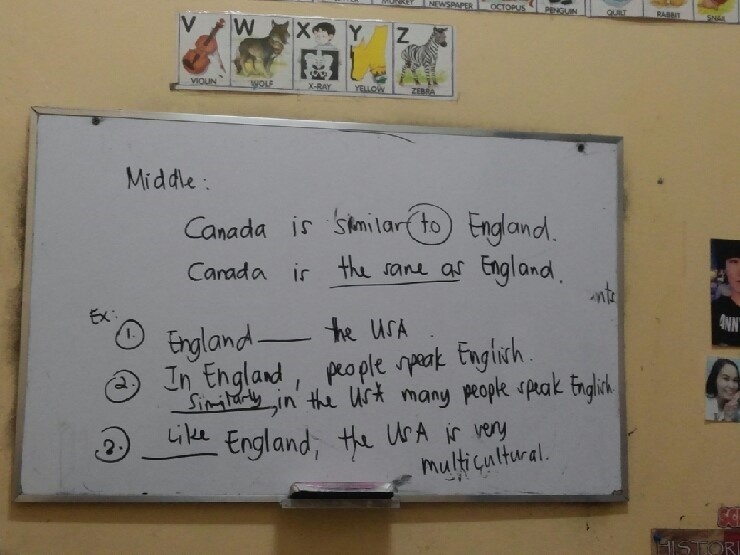 MONKEY NEWSPAPER OCTOPUS PENGUIN QUILT RABBIT SNAIL
V W X Y Z
VIOLIN WOLF X-RAY YELLOW ZEBRA
Middle:
Canada is similar to England.
Canada is the same as England.
Ex:
1. England ____ the USA
2. In England, people speak English.
Similarly, in the USA many people speak English
3. Like England, the USA is very
multicultural.